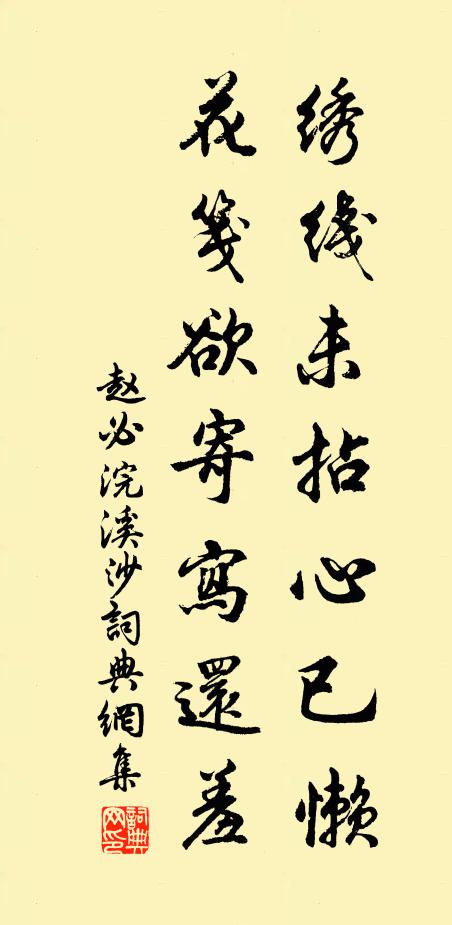 绣线未拈心已懒
花笺欲寄寫還羞
赵必浣溪沙詞典網集
詞典網印